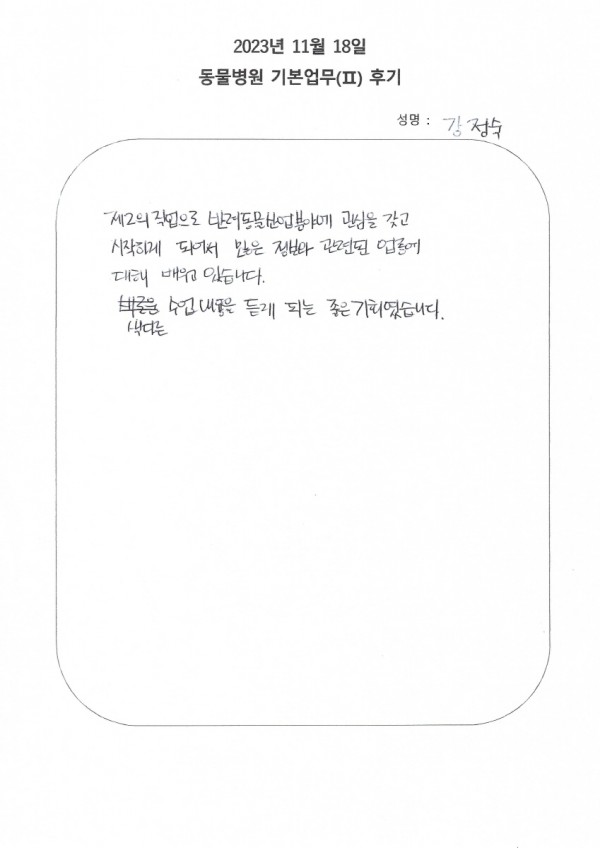 2023년 11월 18일
동물병원 기본업무(Ⅱ) 후기
성명 : 강정숙
제2의 직업으로 반려동물산업분야에 관심을 갖고
시작하게 되어서 많은 정보와 관련된 업종에
대해 배우고 있습니다.
새로운 수업 내용을 듣게 되는 좋은 기회였습니다.
색다른